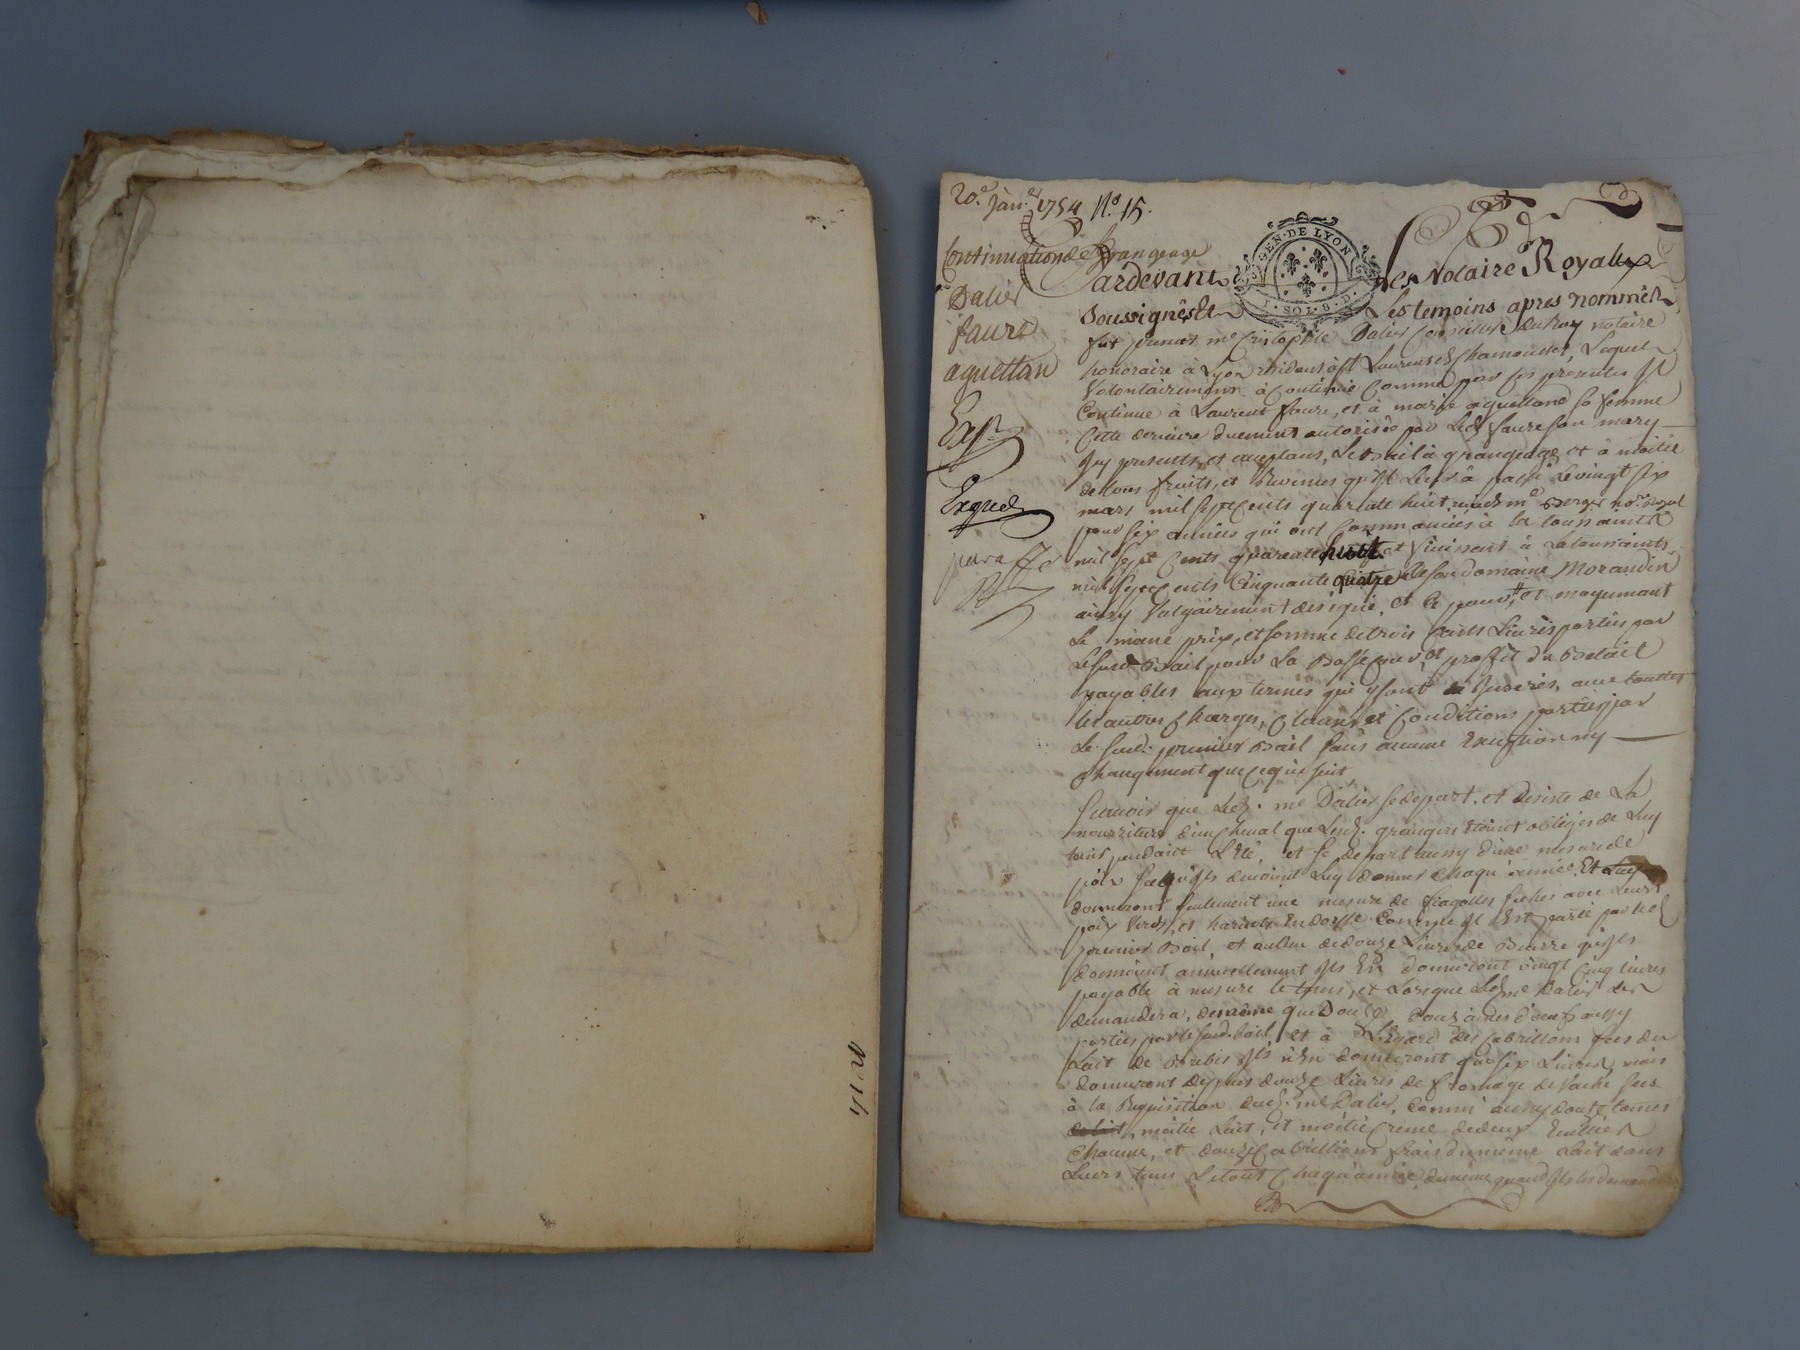 20.e Janv.er 1754 N.o 15.
Continuation de Grangeage
Dalier
faure
aguettan
Exp.
Exped
paraffé
GEN. DE LYON
1. SOL. 8. D.
Pardevant Les Notaire Royaux
Soussignés Et Les temoins apres nommés
fut present me Cristophle Dalier Conseiller du Roy notaire
honoraire à Lyon residant à St Laurent de Chamousset, Lequel
Volontairement à Continué Comme par Ces presentes Il
Continue à Laurent faure, et à marie aguettand sa femme
Cette derniere duement autorisée par Led. faure son mary
Icy presents, et acceptans, Le Bail à grangeage, et à moitié
de tous fruits, et Revenus qu'Il Leur à passé Le vingt six
mars mil sept Cents quarante huit me Berger no.re Royal
pour six années qui ont Commancées à la toussaints
mil sept Cents quarante huit et finissent à La toussaints
mil sept Cents Cinquante quatre de son domaine Morandin
ainsy Vulgairement designé, et Ce pour, et moyennant
Le même prix, et somme de trois Cents Livres portées par
Le susd. Bail pour La Basse Cour, et proffit du Betail
payables aux termes qui y sont Inserés, avec touttes
les autres Charges, Clauses et Conditions portées par
Le susd. premier Bail sans aucune Exception ny
Changement que Ce qui suit,
Scavoir que Led. me Dalier se depart, et desiste de La
nourriture d'un Cheval que Lesd. grangers étoient obligés de Luy
tenir pendant L'Eté, et se depart aussy d'une mesure de
poix qu'Ils devoient Luy donner Chaqu'année, Et Luy
donneront seulement une mesure de fragolles seches avec Leurs
poix Verds, et haricots En Cosse Comme Il Est porté par led
premier Bail, et au lieu de douze Livres de Beurre qu'Ils
donnoient annuellement Ils En donneront vingt Cinq livres
payable à mesure le tems, et Lorsque Led. me Dalier Les
demandera, de même que Douze Douzaines d'oeufs aussy
portées par le susd. bail, et à L'Egard des Cabrillons fres du
Lait de Brebis Ils n'En donneront que six Livres, mais
donneront de plus douze Livres de fromage de Vache secs
à la Requisition dud. me Dalier, Comm'aussy douze tomes
moitié Lait, et moitié Creme de deux
Chacune, et douze Cabrillions frais du même Lait dans
Leurs tems Le tout Chaqu'année, de même quand Ils les demandera
N.o 14